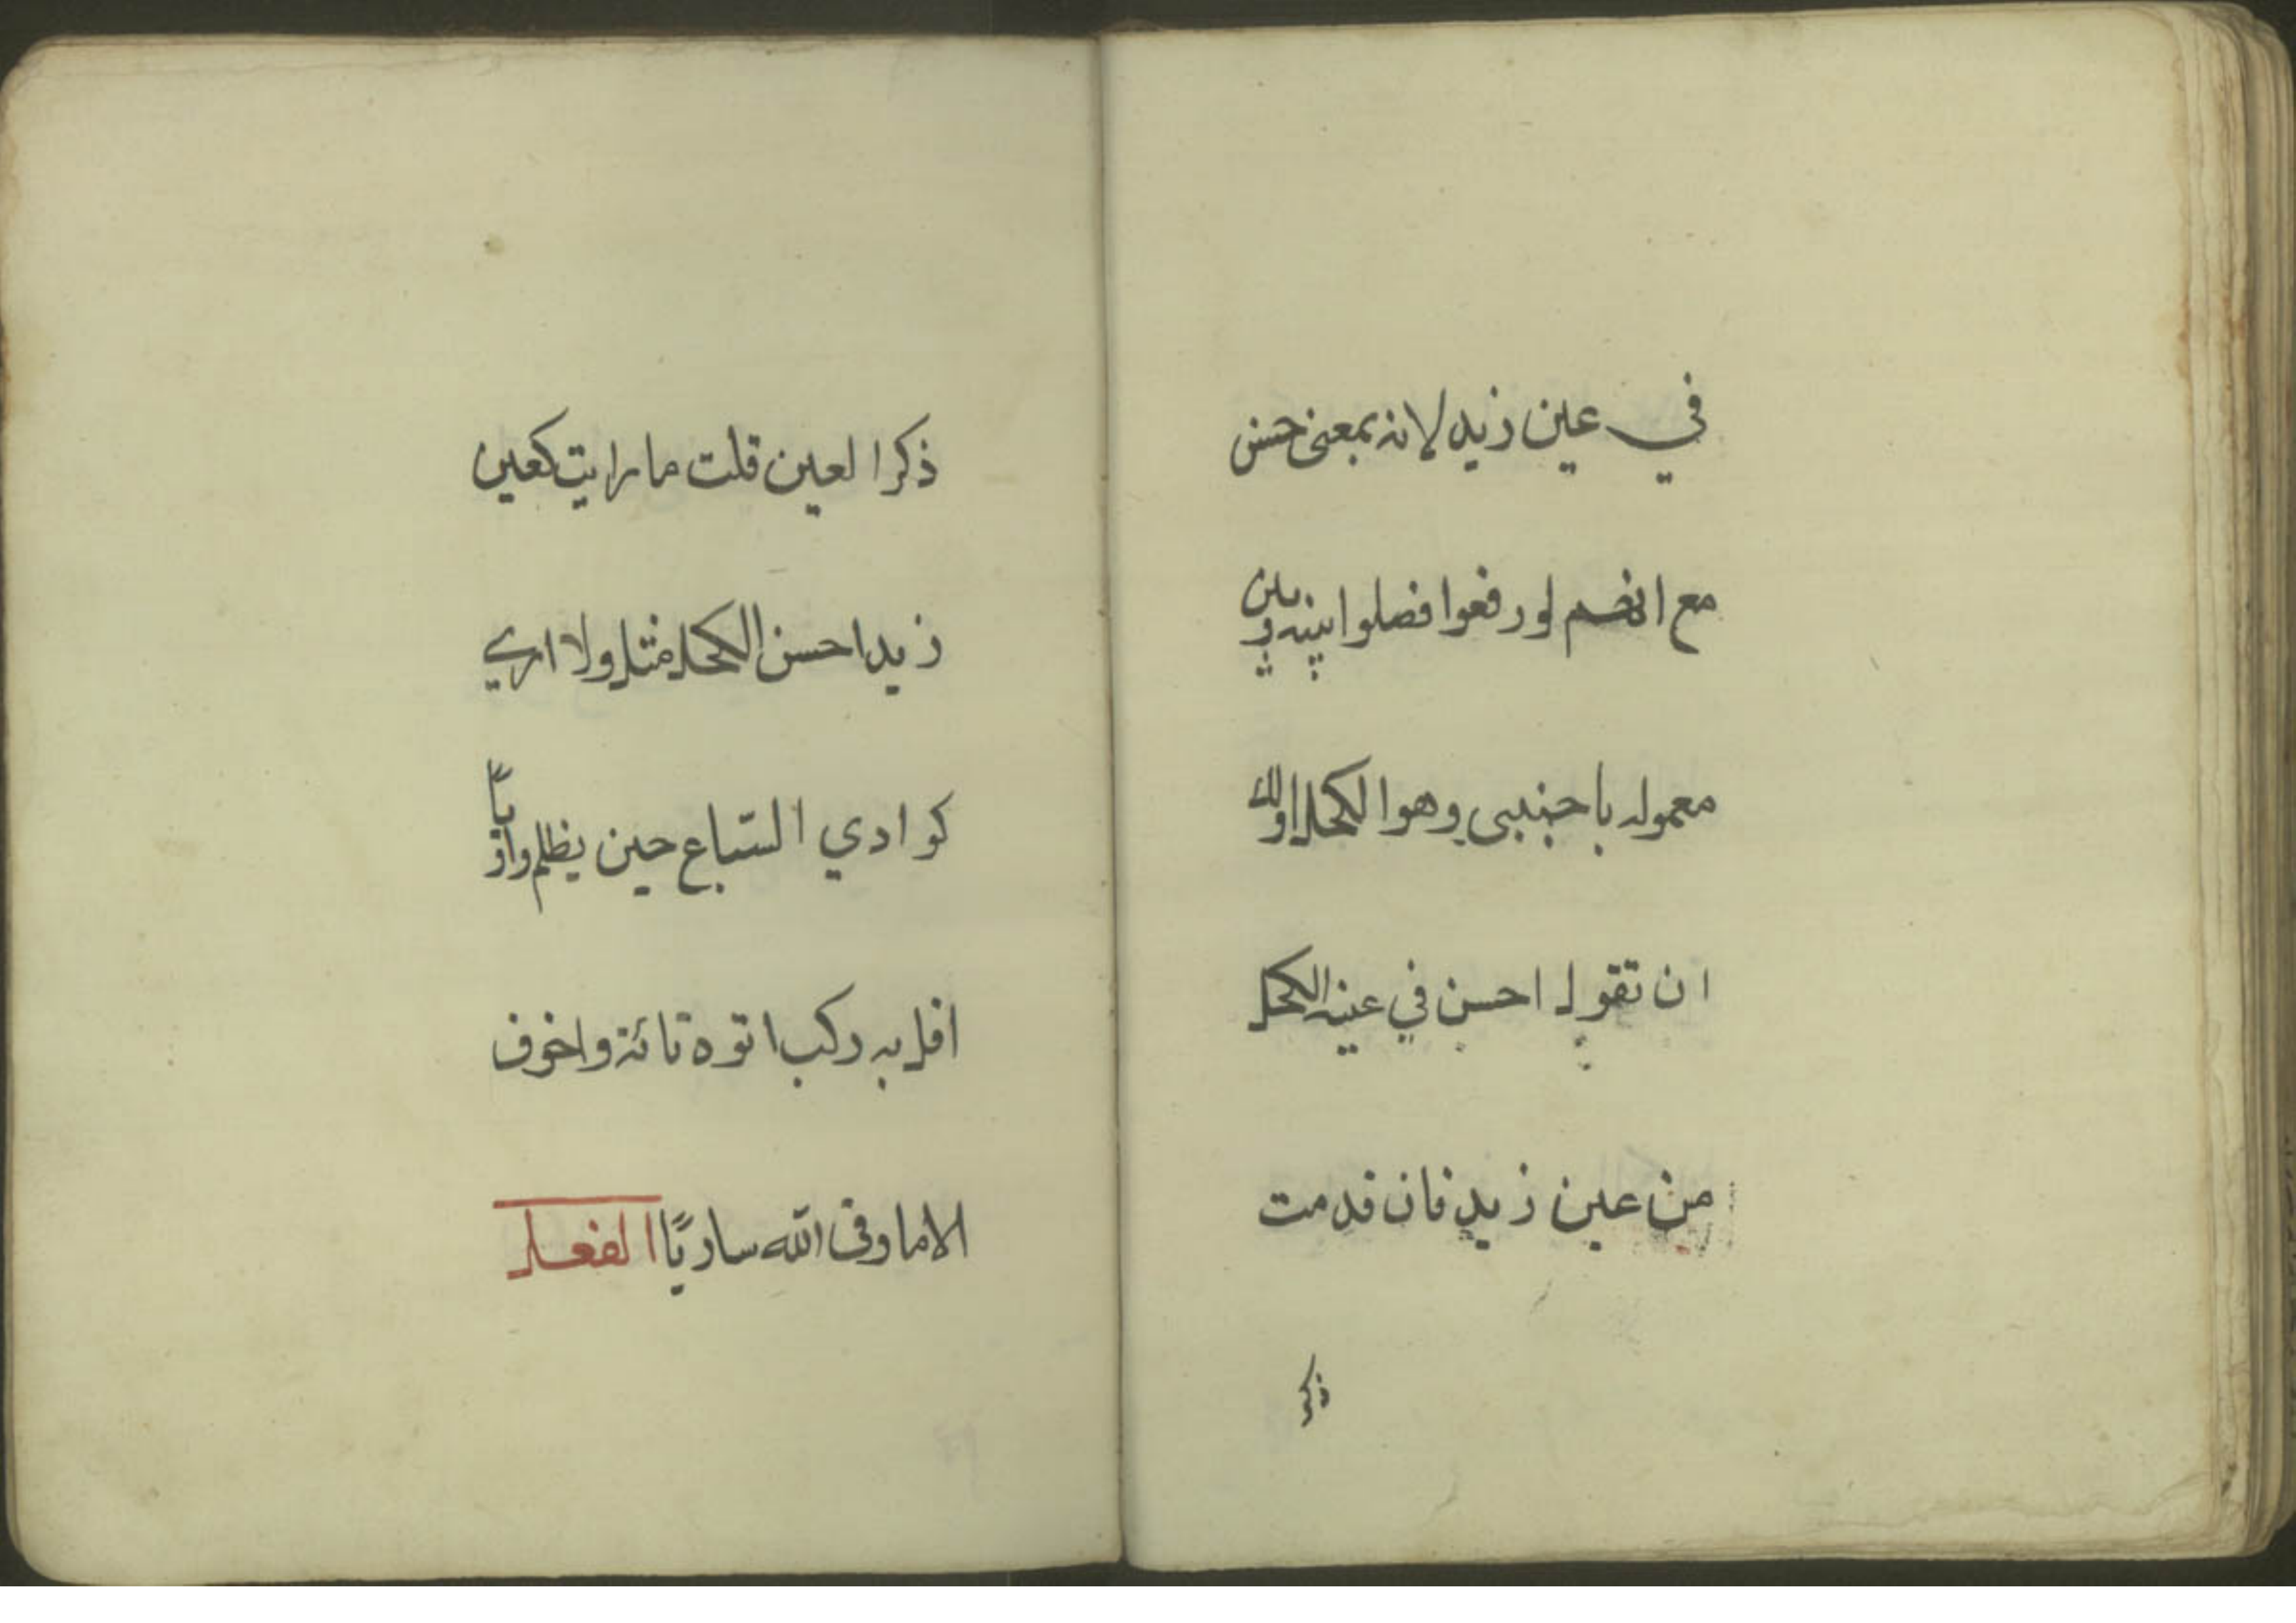 في عين زيد لانه بمعنى حسن
مع انهم لو رفعوا فصلوا بينه وبين
معموله باجنبي وهو الكحل ولك
ان تقول احسن في عينه الكحل
من عين زيد فان قدمت
ذكر العين قلت ما رايت كعين
زيد احسن الكحل مثل ولا اري
كوادي السّباع حين يظلم واديًا
اقل به ركب اتوه تائة واخوف
الا ما وقى الله ساريًا الفعل